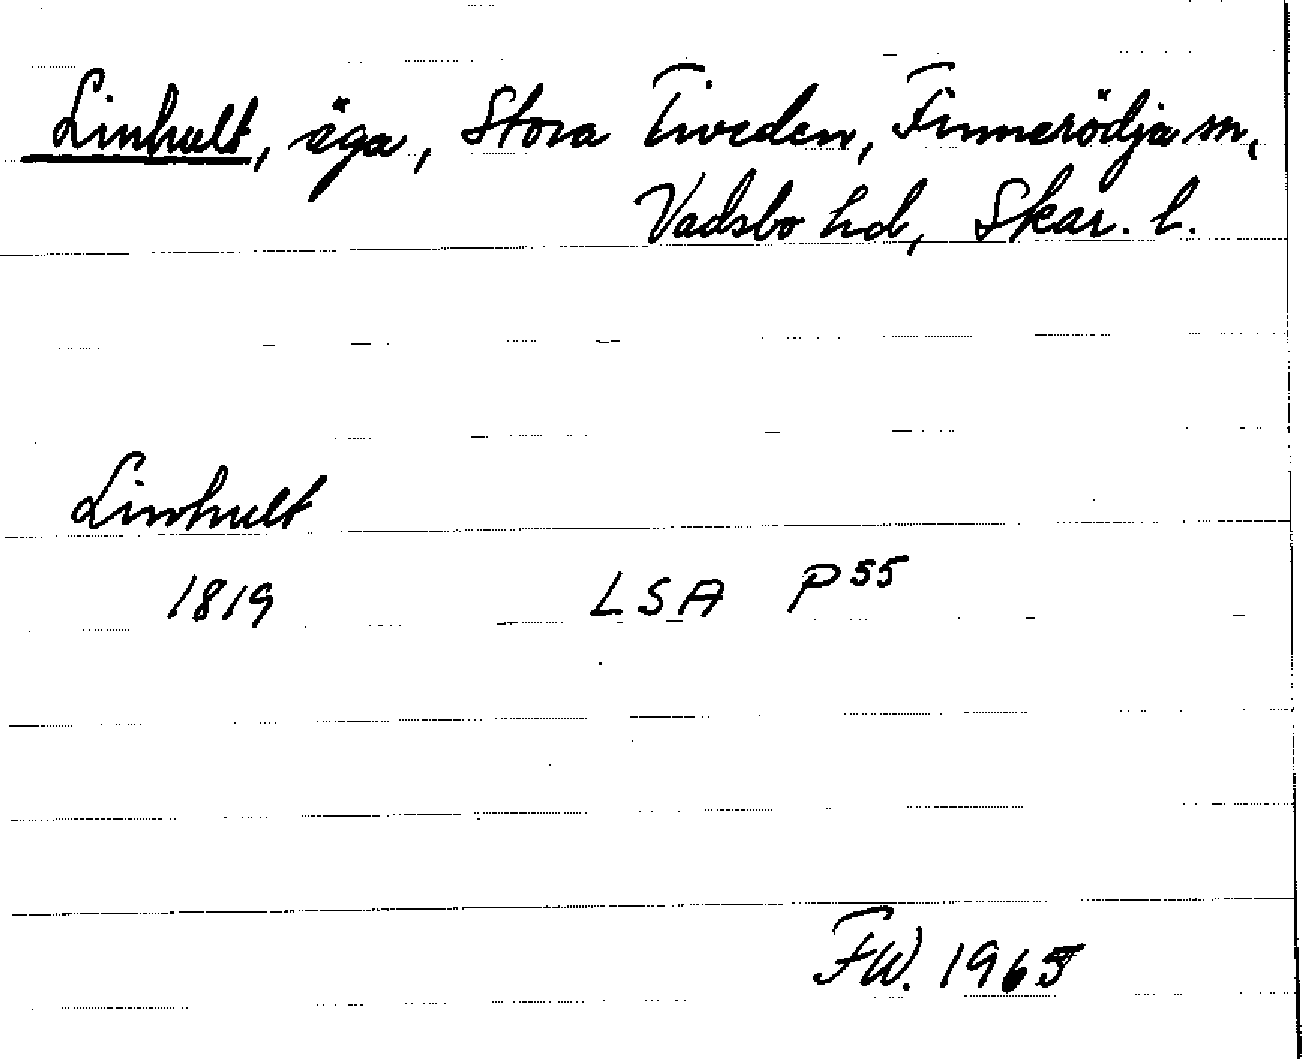 Linhult, äga, Stora Tiveden, Finnerödja sn,
Vadsbo hd, Skar. l.
Linhult
1819 LSA P 55
FW. 1965